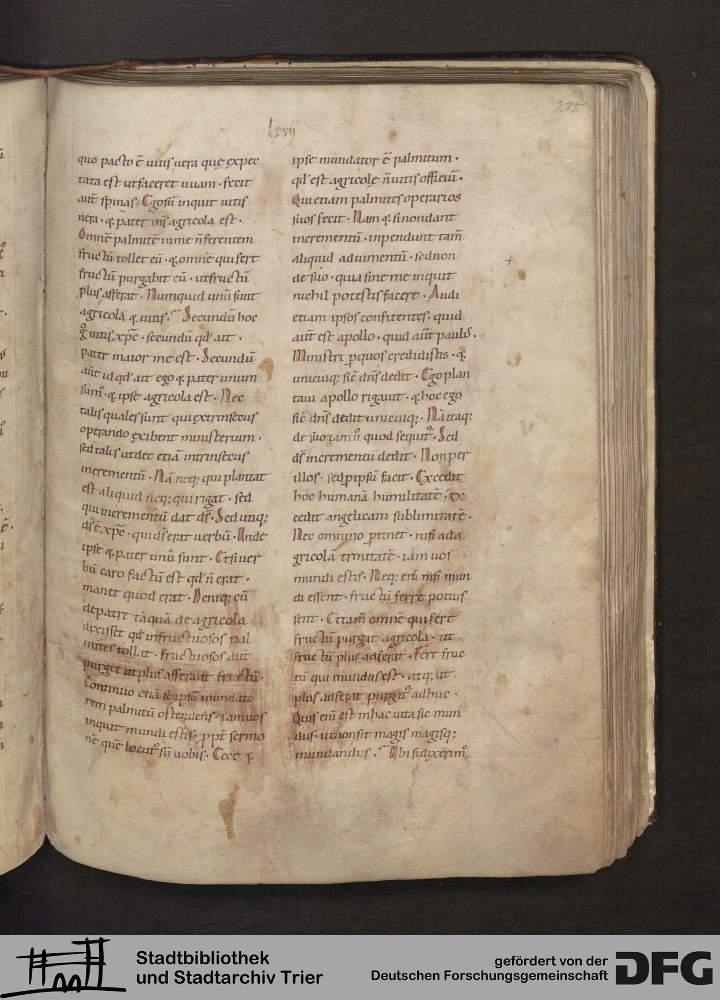 215
lxvij
quo pacto ē uitis uera quę expec
tata est ut faceret uuam · fecit
aūt spinas · Ego sū inquit uitis
uera · & pater mṡ agricola est ·
Omnē palmitē in me n̄ ferentem
fructū tollet eū · & omnē qui fert
fructū purgabit eū · ut fructū
plus afferat · Numquid unū sunt
agricola & uitis · Secundū hoc
g̊ uitis xp̄c · secundū qd̄ ait ·
pater maior me est · Secundū
aūt id qd̄ ait ego & pater unum
sum᷒ · & ipse agricola est · Nec
talis quales sunt qui extrinsecus
operando exibent ministerium ·
sed talis ut det etiā intrinsecus
incrementū · Nā neq; qui plantat
est aliquid neq; qui rigat · sed
qui incrementū dat ds̄ · Sed utiq;
ds̄ ē xp̄c · quia ds̄ erat uerbū · Unde
ipse & pater unū sunt · Et si uer
bū caro factū est qd̄ n̄ erat ·
manet quod erat · Deniq; cū
de patre tāquā de agricola
dixisset qd̄ infructuosos pal
mites tollat · fructuosos aūt
purget ut plus afferant fructū ·
Continuo etiā se ipsū mundato
rem palmitū ostendens · iam uos
inquit mundi estis · ppt̄ sermo
nē quē locut᷒ sū uobis · Ecce &
ipse mundator ē palmitum ·
qd̄ est agricolę n̄ uitis officiū ·
Qui etiam palmites operarios
suos fecit · Nam & si non dant
incrementū · inpendunt tam̄
aliquid adiumentū · sed non
de suo · quia sine me inquit
nichil potestis facere · Audi
etiam ipsos confitentes · quid
aūt est apollo · quid aūt paulus ·
Ministri p quos credidistis · &
unicuiq; sic̄ dn̄s dedit · Ego plan
taui apollo rigauit · & hoc ego
sic̄ dn̄s dedit unicuiq; · Nā itaq;
de suo iam n̄ quod sequit᷑ · Sed
ds̄ incrementū dedit · Non per
illos · sed p ipsū facit · Excedit
hoc humanā humilitatē · ex
cedit angelicam sublimitatē ·
Nec omnino ptinet · nisi ad a
gricolā trinitatē · iam uos
mundi estis · Neq; eni nisi mun
di essent · fructū ferre potuis
sent · Et tam̄ omnē qui fert
fructū purgat agricola · ut
fructū plus adferat · Fert fruc
tū qui mundus est · atq; ut
plus adferat purgat᷑ adhuc ·
Quis eni est in hac uita sic mun
dus · ut non sit magis magisq;
mundandus · Ubi si dixerim᷒
Stadtbibliothek
und Stadtarchiv Trier
gefördert von der
Deutschen Forschungsgemeinschaft
DFG